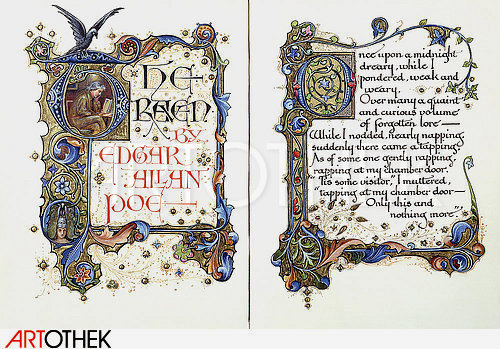 THE
RAVEN
BY
EDGAR
ALLAN
POE
Once upon a midnight
dreary, while I
pondered, weak and
weary,
Over many a quaint
and curious volume
of forgotten lore—
While I nodded, nearly napping,
suddenly there came a tapping,
As of some one gently rapping,
rapping at my chamber door.
"'Tis some visitor," I muttered,
"tapping at my chamber door—
Only this and
nothing more."
ARTOTHEK